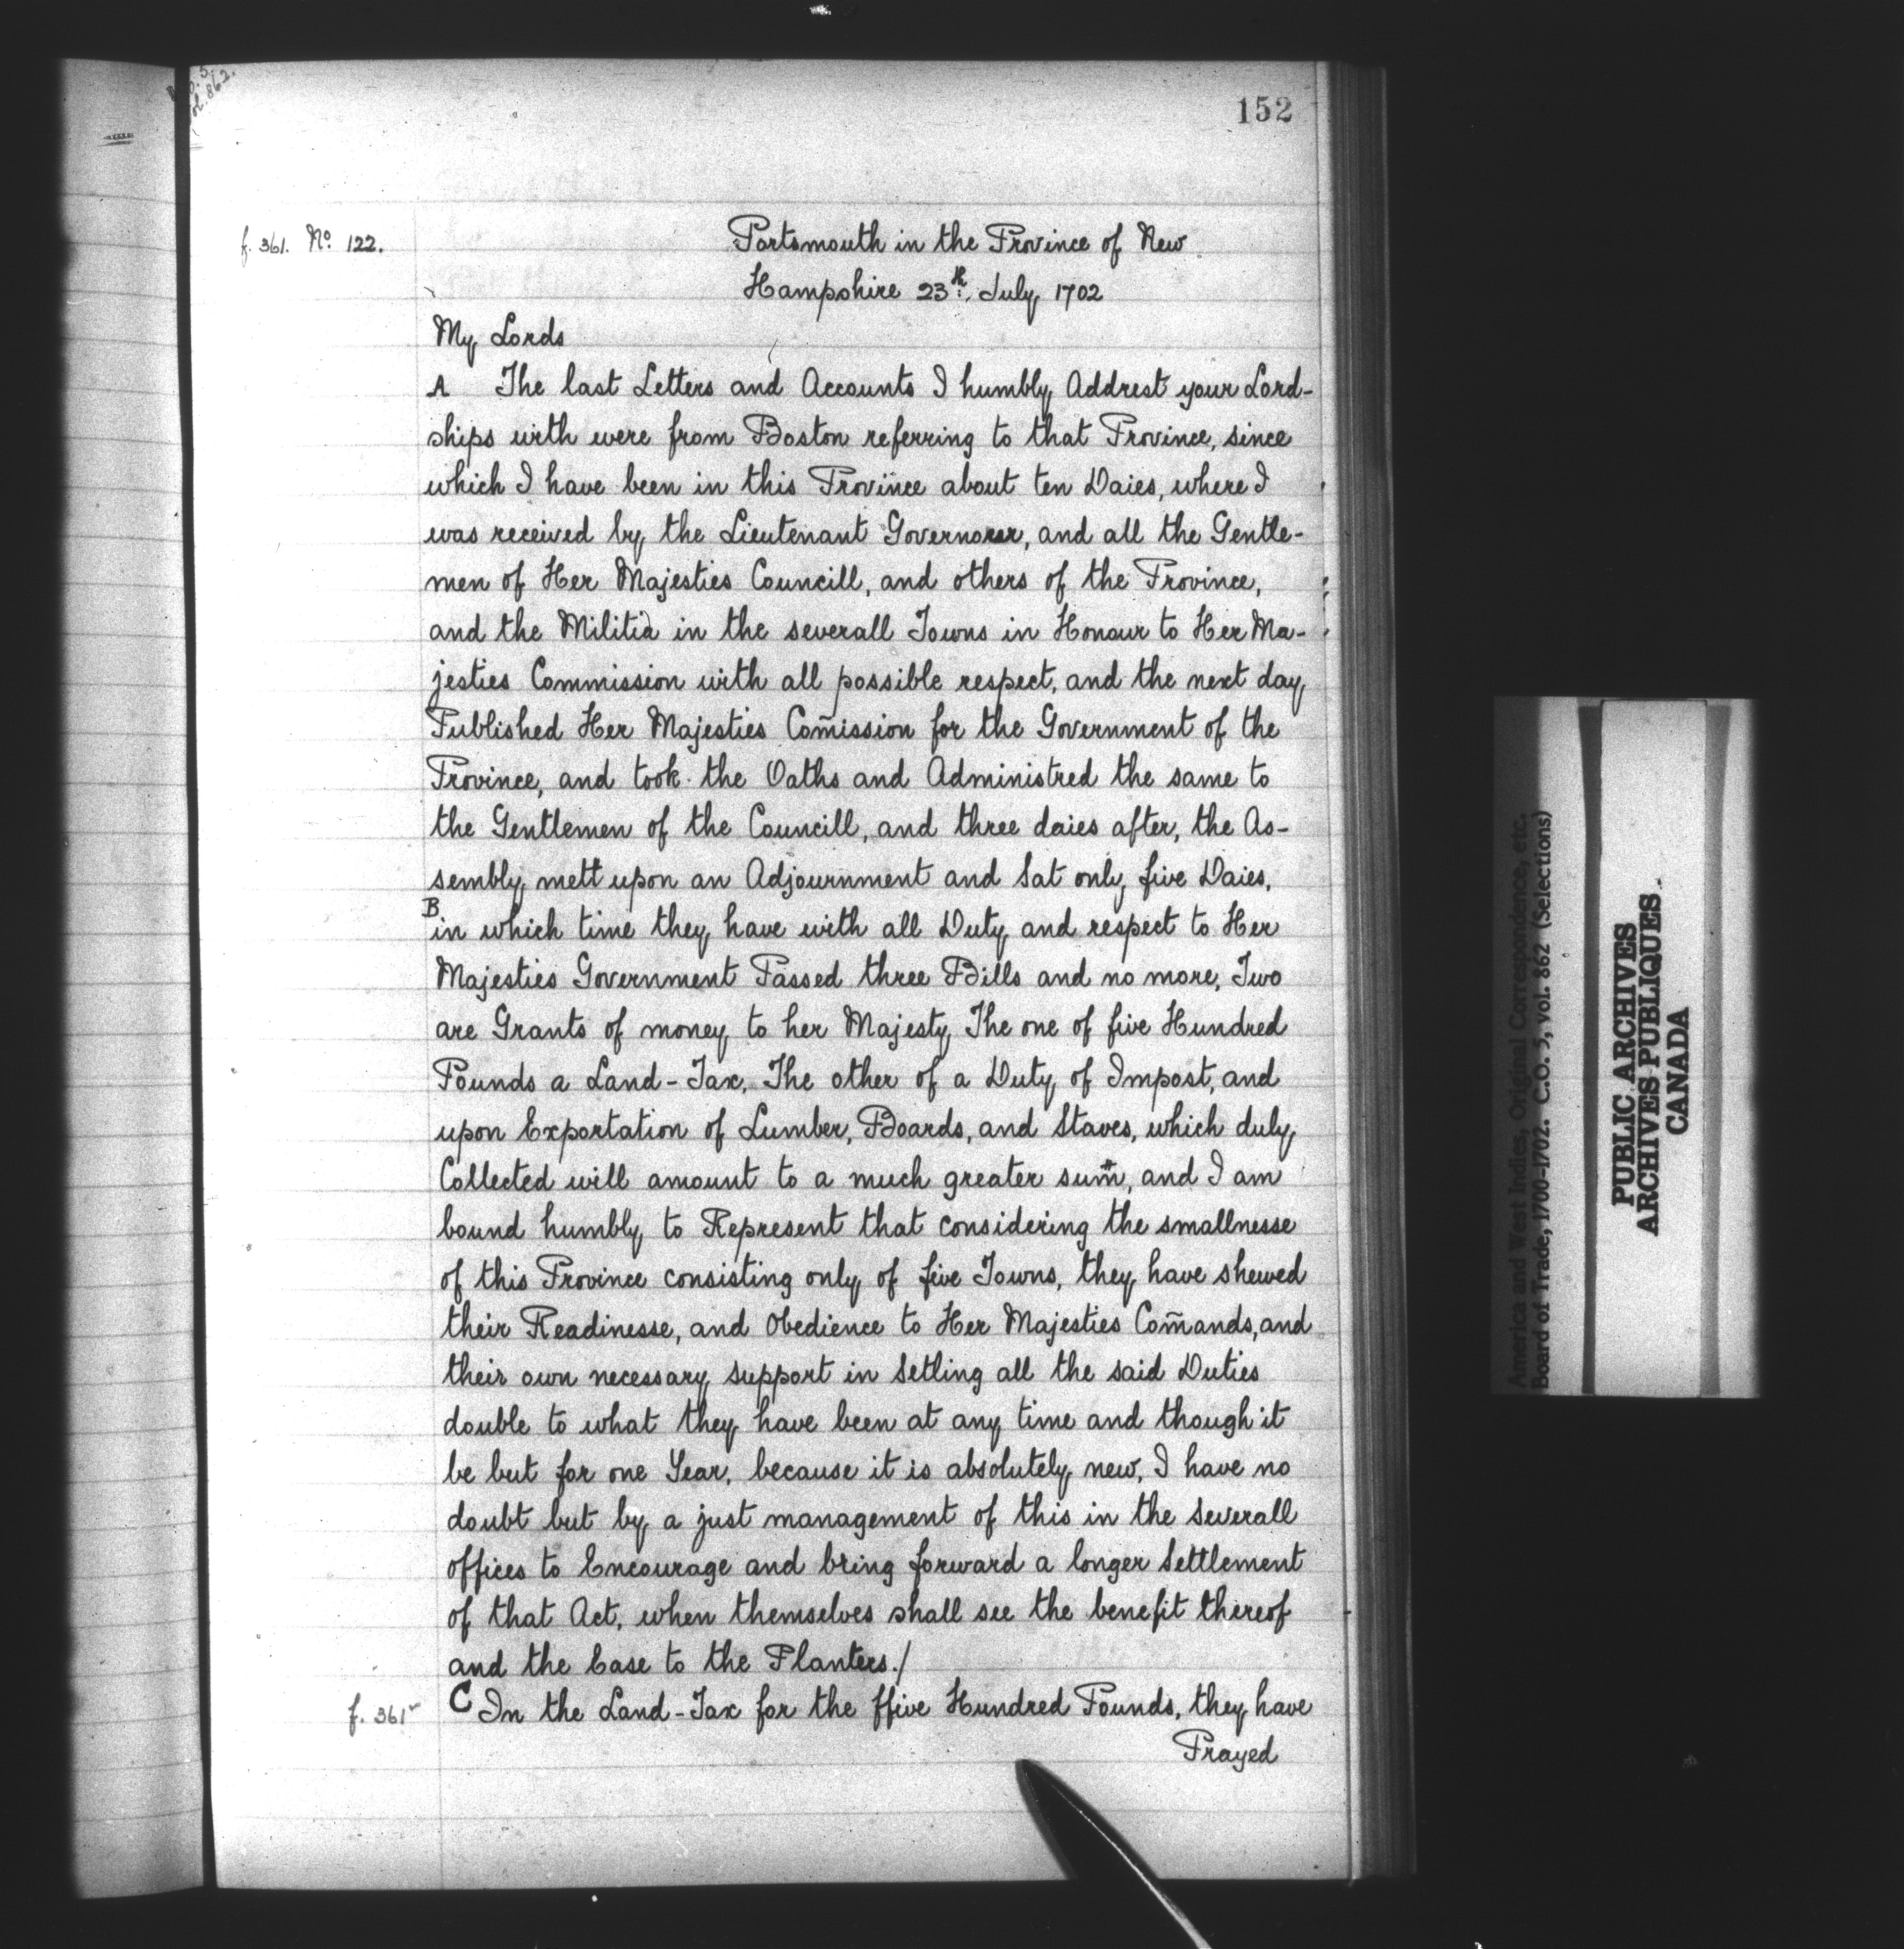 152
f. 361. No. 122.
Portsmouth in the Province of New
Hampshire 23th. July 1702
My Lords
A The last Letters and Accounts I humbly Addrest your Lord-
ships with were from Boston referring to that Province, since
which I have been in this Province about ten Daies, where I
was received by the Lieutenant Governour, and all the Gentle-
men of Her Majesties Councill, and others of the Province,
and the Militia in the severall Towns in Honour to Her Ma-
jesties Commission with all possible respect, and the next day
Published Her Majesties Com̃ission for the Government of the
Province, and took the Oaths and Administred the same to
the Gentlemen of the Councill, and three daies after, the As-
sembly mett upon an Adjournment and Sat only five Daies,
B
in which time they have with all Duty and respect to Her
Majesties Government Passed three Bills and no more, Two
are Grants of money to her Majesty, The one of five Hundred
Pounds a Land-Tax, The other of a Duty of Impost, and
upon Exportation of Lumber, Boards, and Staves, which duly
Collected will amount to a much greater sum̃, and I am
bound humbly to Represent that considering the smallnesse
of this Province consisting only of five Towns, they have shewed
their Readinesse, and Obedience to Her Majesties Com̃ands, and
their own necessary support in Setling all the said Duties
double to what they have been at any time and though it
be but for one Year, because it is absolutely new, I have no
doubt but by a just management of this in the Severall
offices to Encourage and bring forward a longer Settlement
of that Act, when themselves shall see the benefit thereof
and the Ease to the Planters./
f. 361v C In the Land-Tax for the ffive Hundred Pounds, they have
Prayed
America and West Indies, Original Correspondence, etc.
Board of Trade, 1700-1702. C.O. 5, vol. 862 (Selections)
PUBLIC ARCHIVES
ARCHIVES PUBLIQUES
CANADA